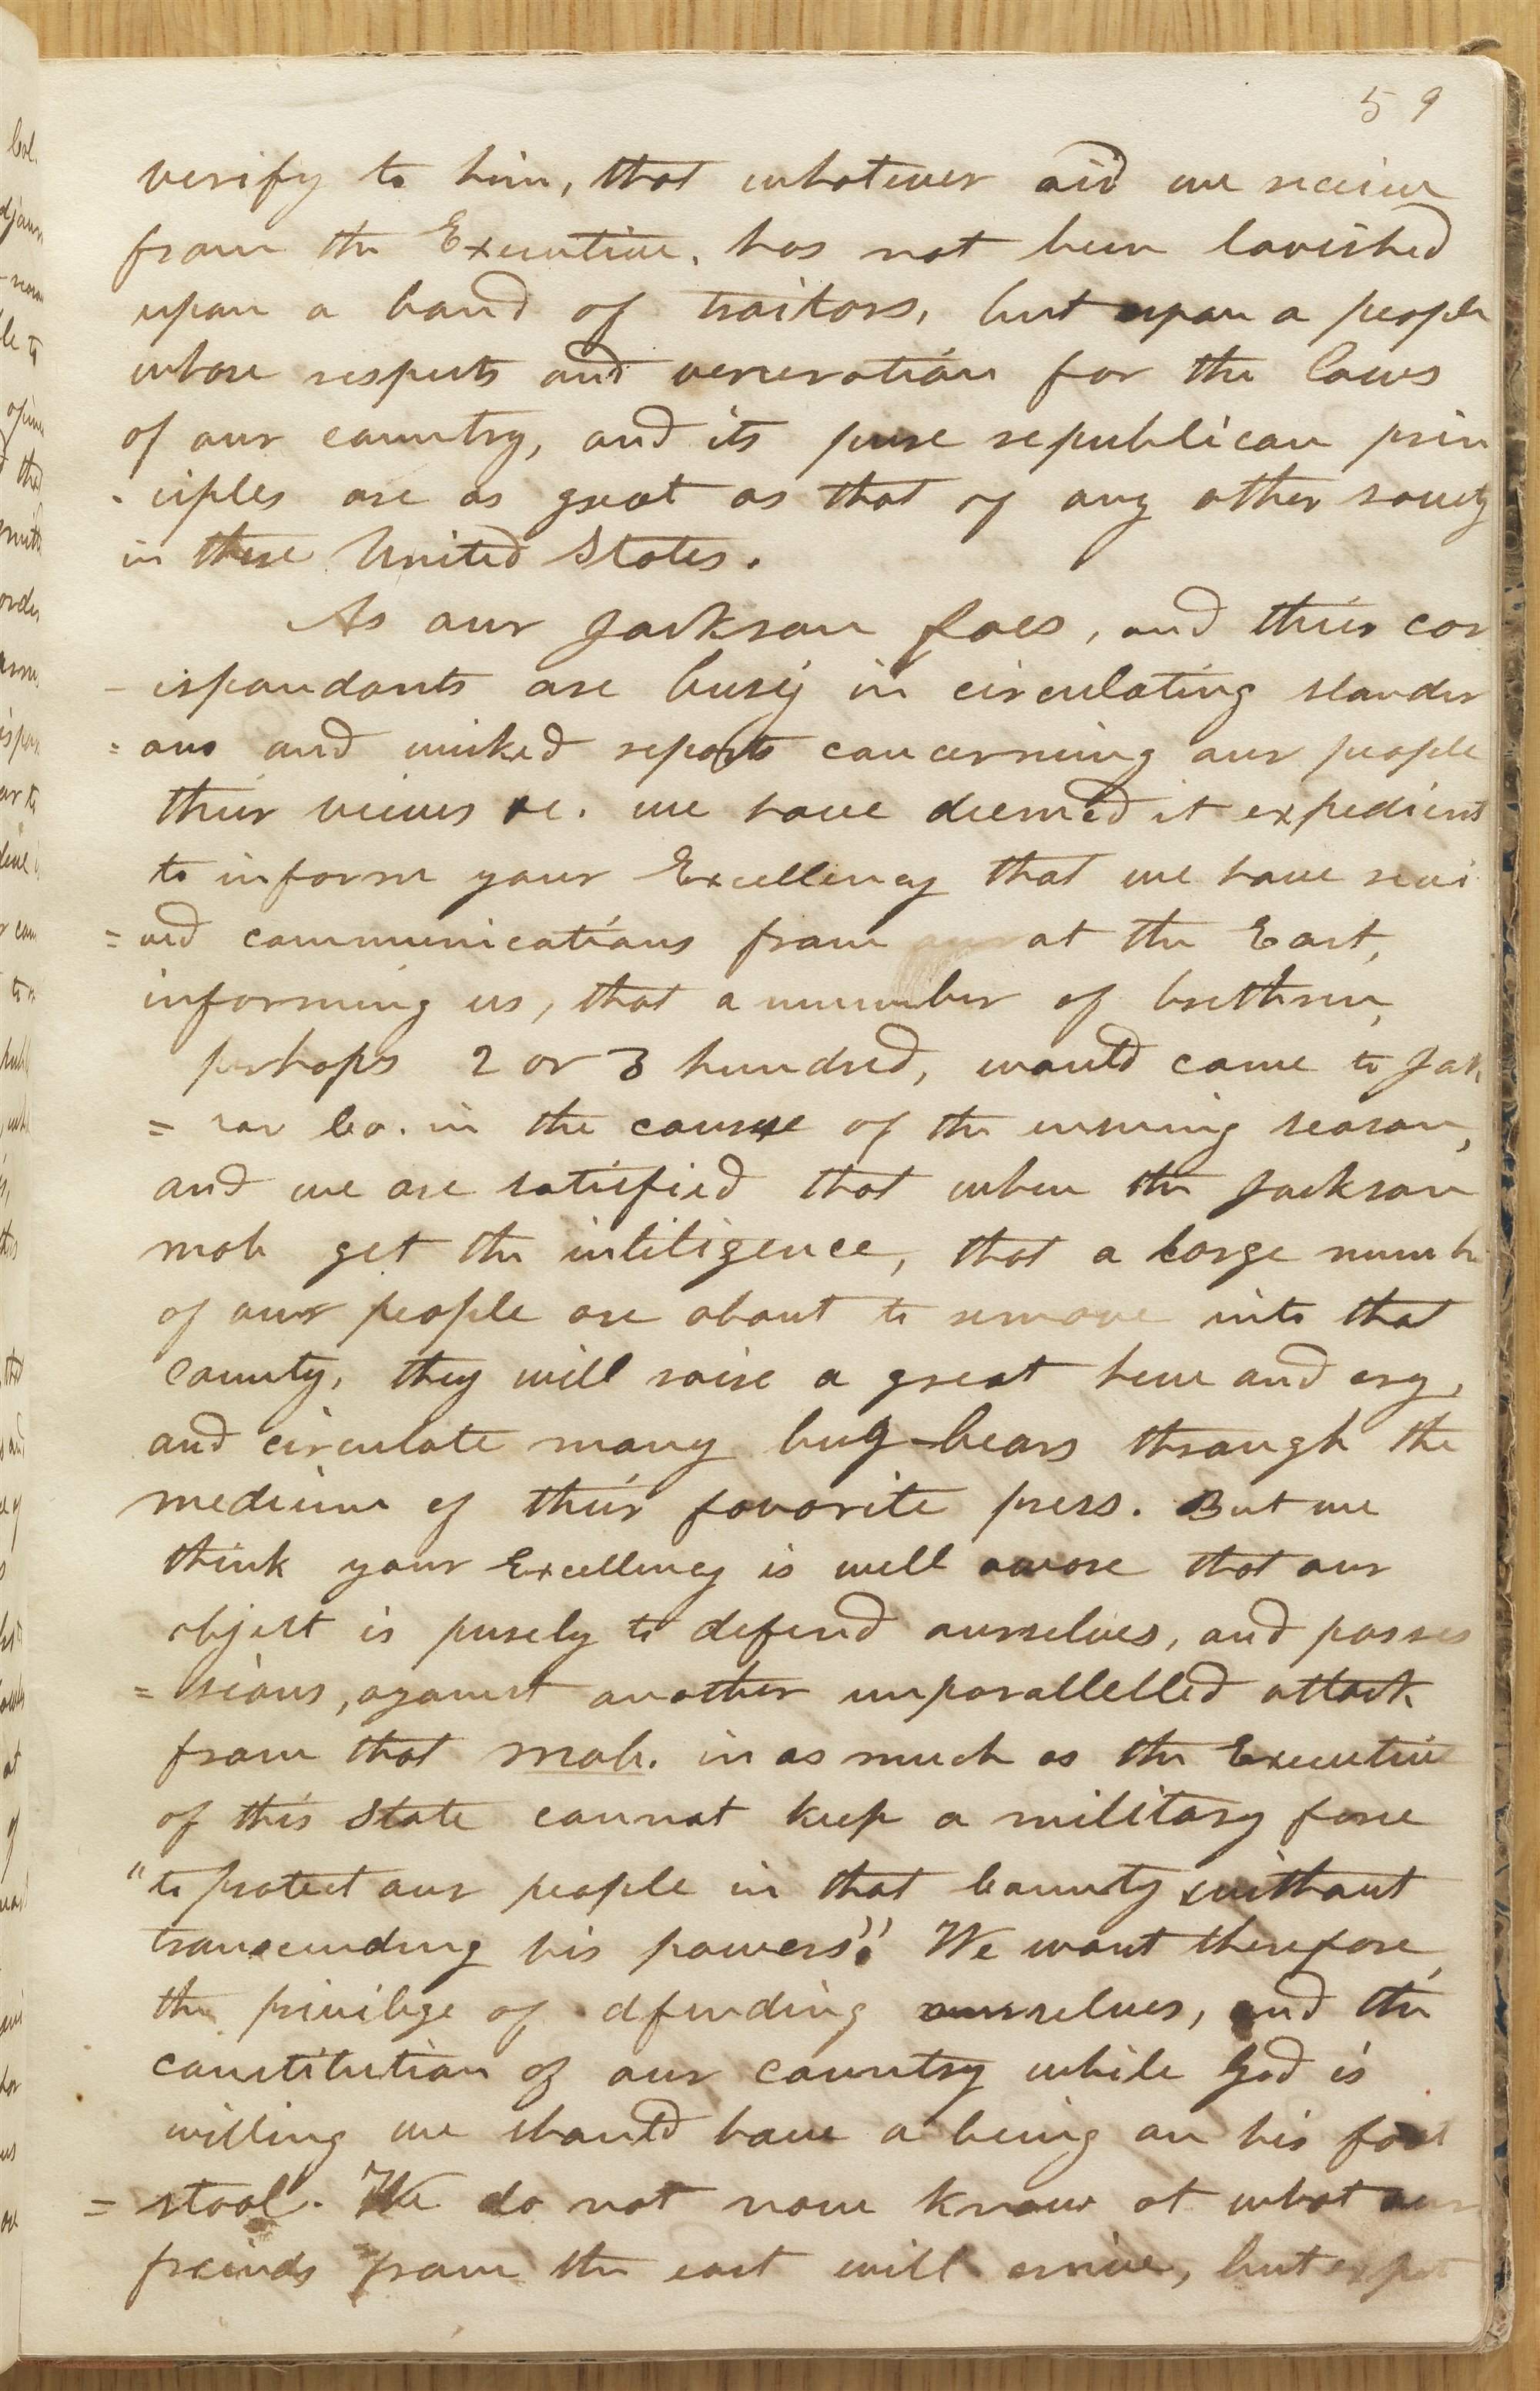 59
verify to him, that whatever aid we receive
from the Executive, has not been lavished
upon a band of traitors, but upon a people
whose respects and veneration for the laws
of our country, and its pure republican prin
- ciples are as great as that of any other society
in these United States.
As our Jackson foes, and their cor
- ispondants are busy in circulating slander
= ous and wicked reports concerning our people
their views &c. we have deemed it expedient
to inform your Excellency that we have recei
= ved communications from our at the East,
informing us, that a number of brethren,
perhaps 2 or 3 hundred, would come to Jack
= son Co. in the course of the ensuing season,
and we are satisfied that when the Jackson
mob get the intiligence, that a large numbe
of our people are about to remove into that
County, they will raise a great hue and cry,
and circulate many bug-bears through the
medium of their favorite press. But we
think your Excellency is well aware that our
object is purely to defend ourselves, and posses
= sions, against another unparallelled attack
from that mob. in as much as the Executive
of this State cannot keep a military force
"to protect our people in that County without
transcending his powers". We want therefore,
the privilege of dfending ourselves, and the
constitution of our country while God is
willing we should have a being on his foot
= stool. We do not now know at what our
freinds from the east will arrive, but expect